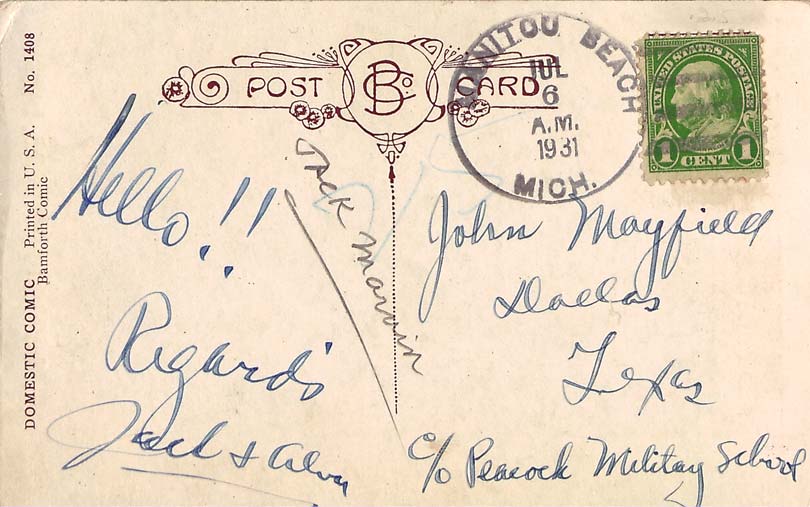 DOMESTIC COMIC Printed in U. S. A. No. 1408
Bamforth Comic
POST BCo CARD
MANITOU BEACH
JUL
6
A.M.
1931
MICH.
UNITED STATES POSTAGE
1 CENT 1
Hello!!
Regards
Jack & Alva
Jack Marvin
John Mayfield
Dallas
Texas
c/o Peacock Military School